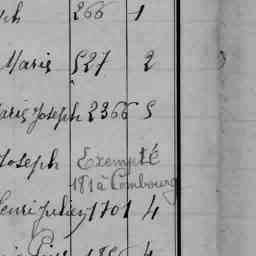 266 1
Marie 527 2
Marie Joseph 2366 5
Joseph Exempté
181 à Combourg
Henri Julien 1701 4
4